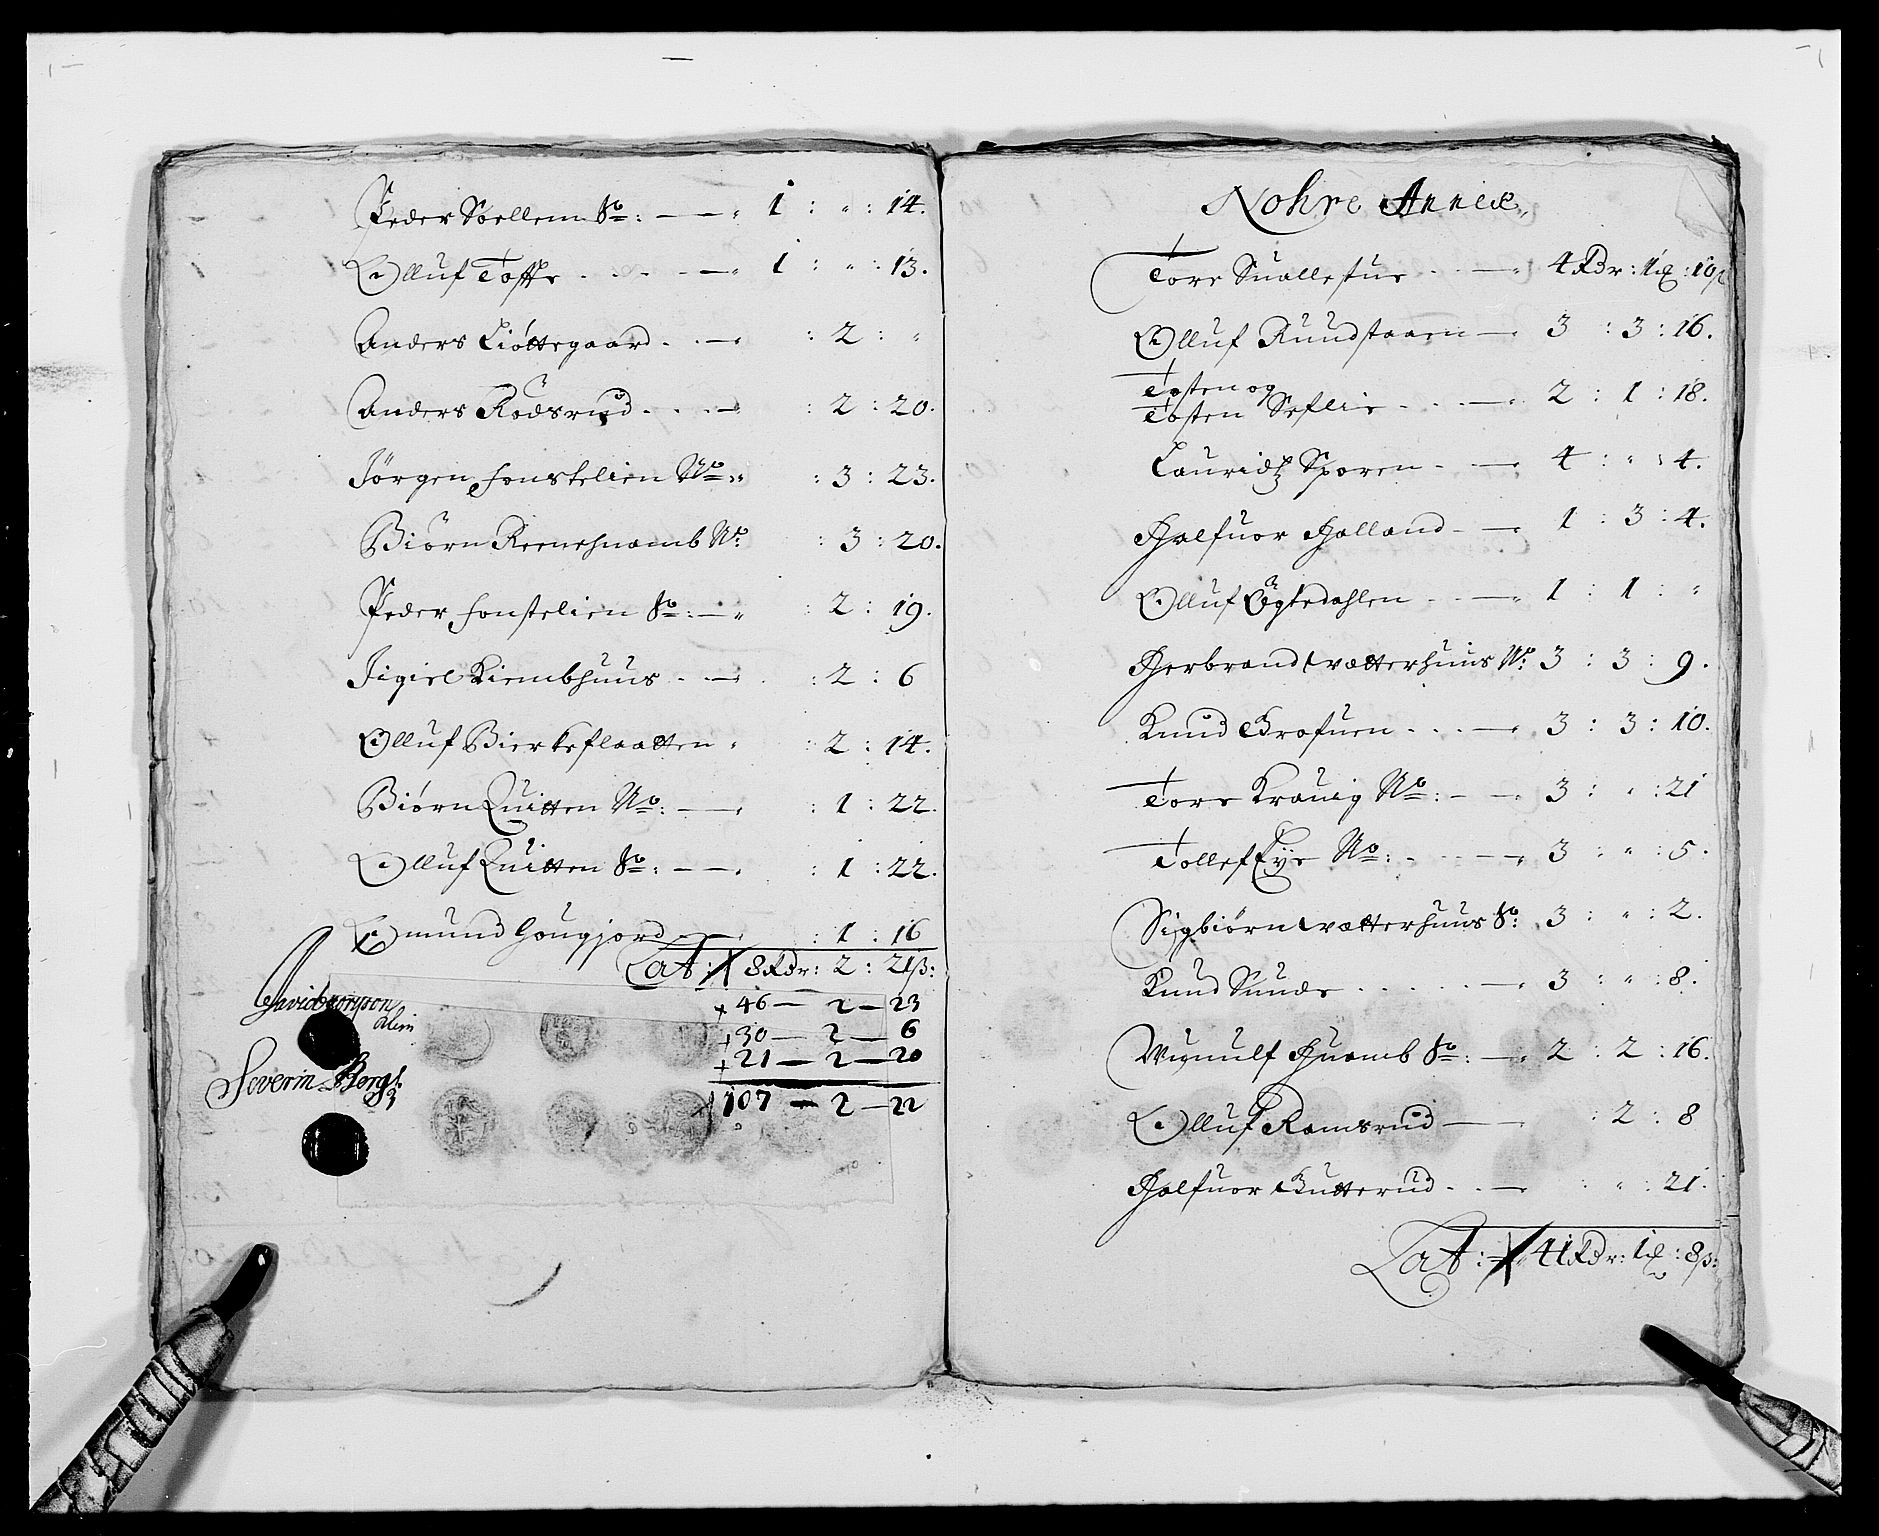 Peder Soellem So: — — 1 : " : 14.
Olluf Toffte . . . — 1 : " : 13.
Anders Liøttegaard . . — : 2 : "
Anders Rodsrud . . . — : 2 : 20.
Jørgen Fonstelien No: : 3 : 23.
Biørn No: : 3 : 20.
Peder Fonstelien So: — : 2 : 19.
Kiembhuus . . — : 2 : 6
Olluf Bierkeflaatten : 2 : 14.
Biørn Quitten No: — : 1 : 22.
Olluf Quitten So: — — : 1 : 22.
Omund Gougjord — : 1 : 16
Lat: 8 Rdr: 2 : 21 ß:
+ 46 — 2 — 23
+ 30 — 2 — 6
+ 21 — 2 — 20
107 — 2 — 22
Severin Borgs.
Nohre Annex
Tore Suallestue . . . — 4 Rdr: 1 : 10 ß
Olluf Ruudstaaen — 3 : 3 : 16.
Tosten og
Tosten Seflie . . . — 2 : 1 : 18.
Lauridtz Sporen . — 4 : " : 4.
Halfuor Halland . — 1 : 3 : 4.
Olluf Øgtedahlen . . — 1 : 1 : "
Herbrand Tvætterhuus No: 3 : 3 : 9.
Knud Grofuen . . . — 3 : 3 : 10.
Tore Krauig No: — — 3 : " : 21
Tollef Eye No: . . — 3 : " : 5.
Sigbiørn Tvætterhuus So: 3 : " : 2.
Knud Sunde . . . . . — 3 : " : 8.
So: — 2 : 2 : 16.
Olluf Ramsrud — : 2 : 8
Halfuor Gutterud . . — : " : 21.
Lat: 41 Rdr: 1 : 8 ß: